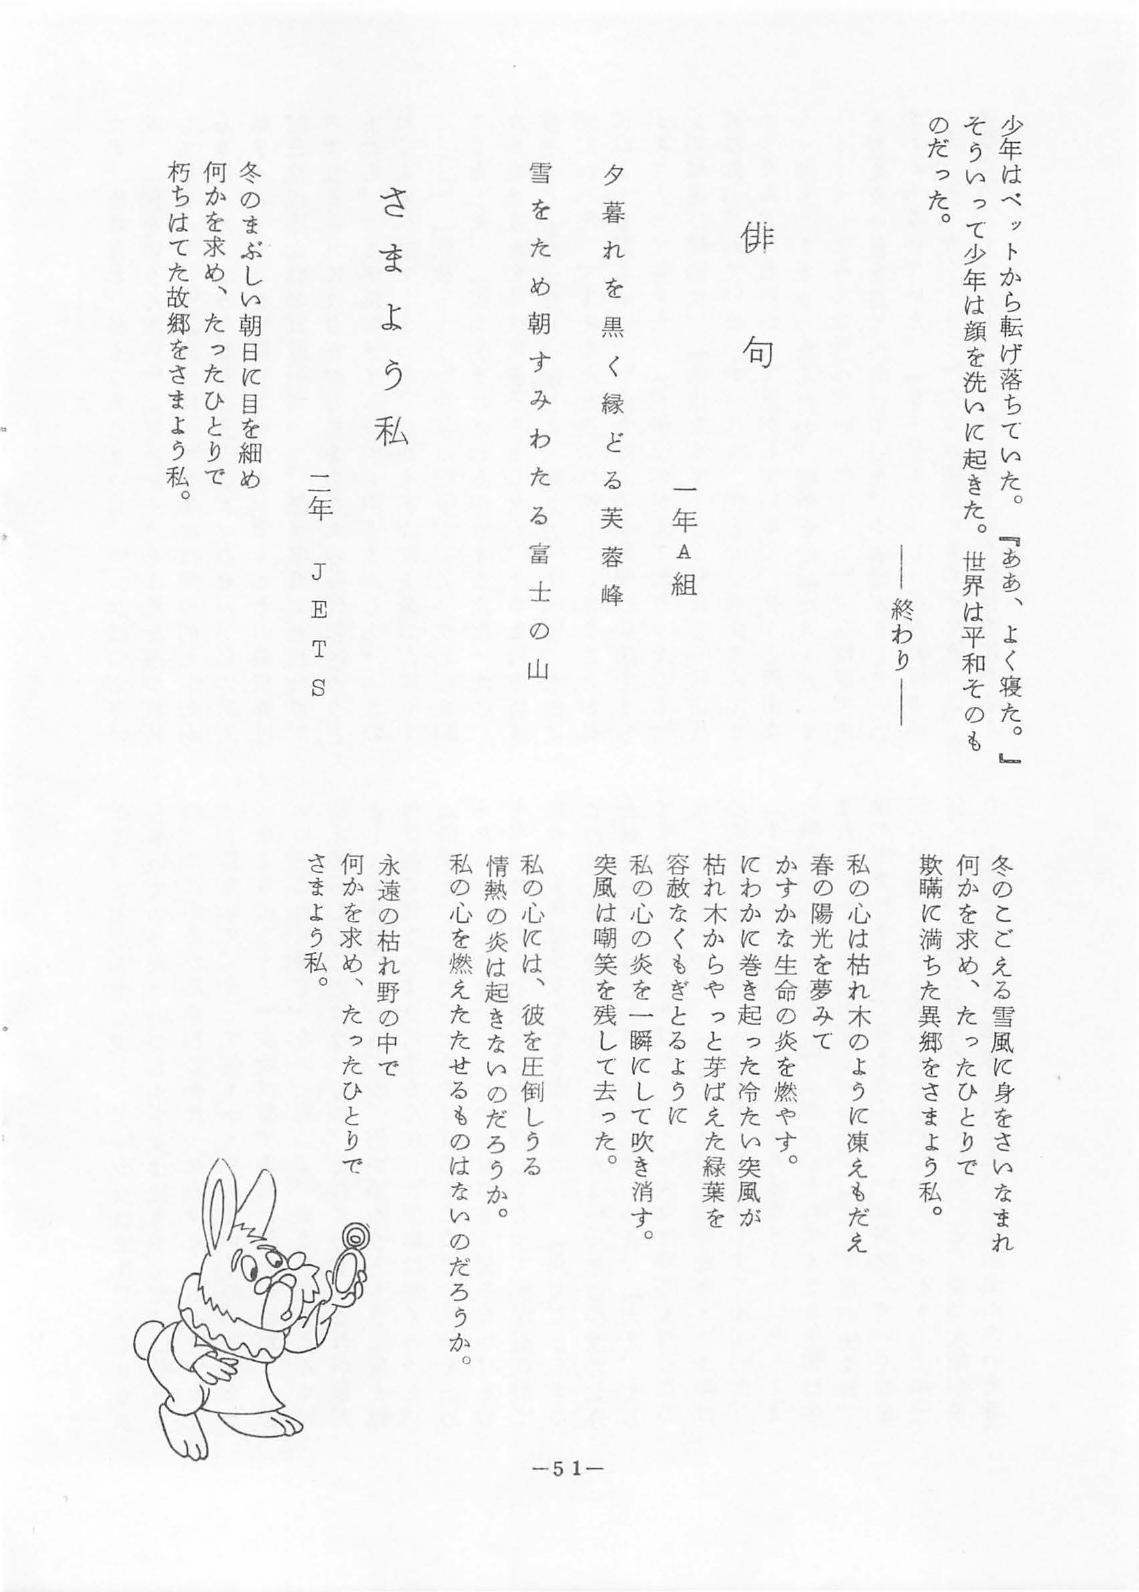 少年はペットから転げ落ちていた。『ああ、よく寝た。』
そういって少年は顔を洗いに起きた。世界は平和そのも
のだった。
――終わり――
俳句
一年A組
夕暮れを黒く縁どる芙蓉峰
雪をため朝すみわたる富士の山
さまよう私
二年 JETS
冬のまぶしい朝日に目を細め
何かを求め、たったひとりで
朽ちはてた故郷をさまよう私。
冬のこごえる雪風に身をさいなまれ
何かを求め、たったひとりで
欺瞞に満ちた異郷をさまよう私。
私の心は枯れ木のように凍えもだえ
春の陽光を夢みて
かすかな生命の炎を燃やす。
にわかに巻き起った冷たい突風が
枯れ木からやっと芽ばえた緑葉を
容赦なくもぎとるように
私の心の炎を一瞬にして吹き消す。
突風は嘲笑を残して去った。
私の心には、彼を圧倒しうる
情熱の炎は起きないのだろうか。
私の心を燃えたたせるものはないのだろうか。
永遠の枯れ野の中で
何かを求め、たったひとりで
さまよう私。
—51—